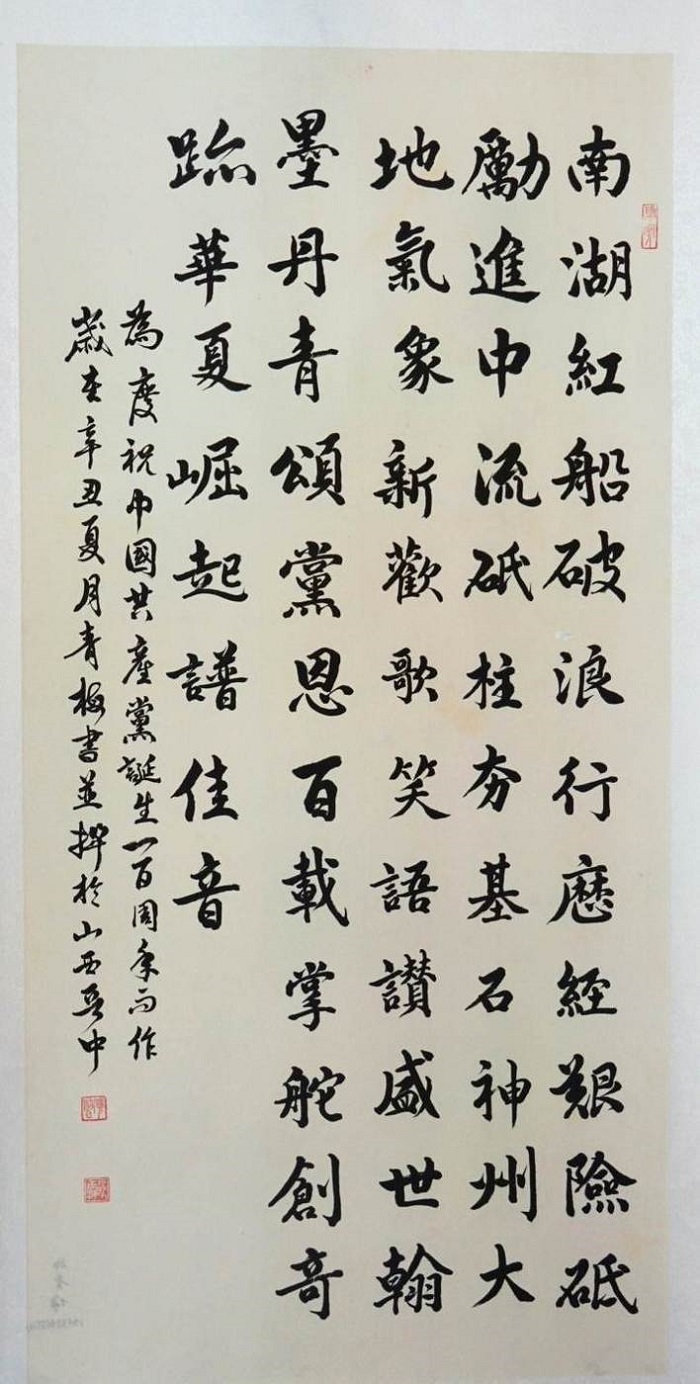 南湖紅船破浪行歷經艱險砥
勵進中流砥柱夯基石神州大
地氣象新歡歌笑語讚盛世翰
墨丹青頌黨恩百載掌舵創奇
跡華夏崛起譜佳音
為慶祝中國共產黨誕生一百周年而作
歲在辛丑夏月青梅書並撰於山西晉中